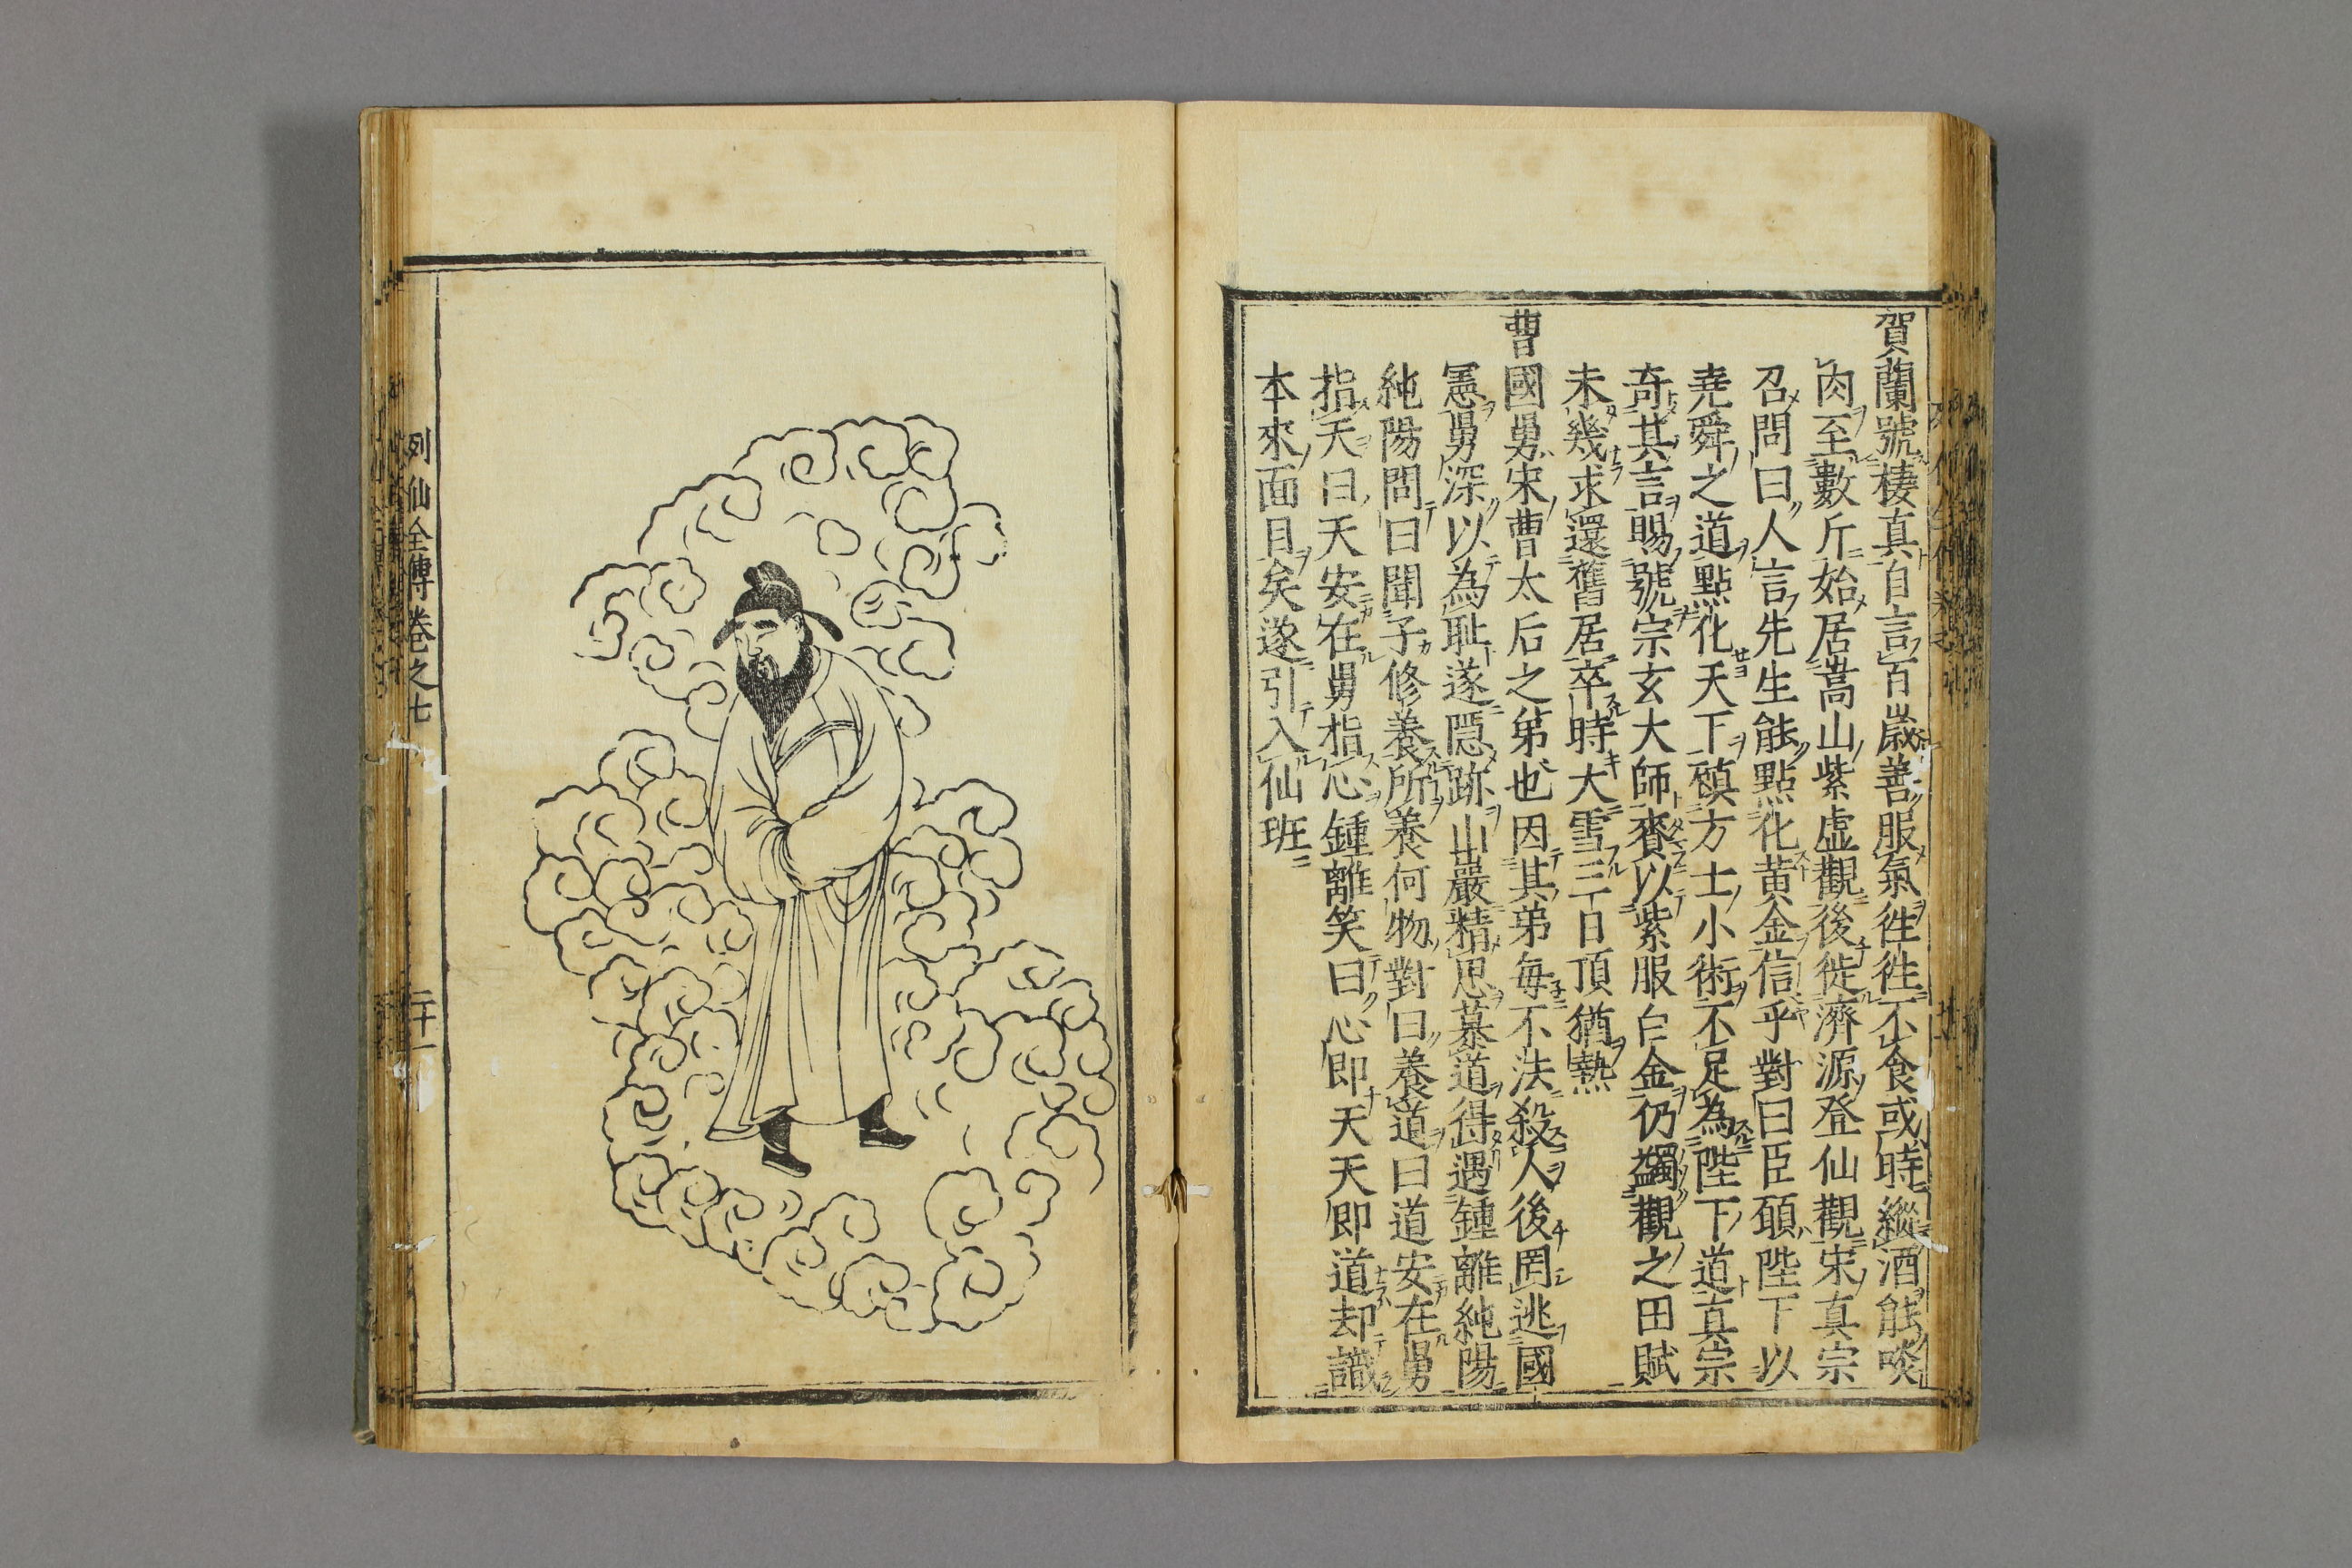 賀蘭號棲真自言百歲善服氣徃徃不食或時縱酒能啖
肉至數斤始居嵩山紫虛觀後徙濟源登仙觀宋真宗
召問曰人言先生能點化黄金信乎對曰臣願陛下以
堯舜之道點化天下頥方士小術不足為陛下道真宗
奇其言賜號宗玄大師賚以紫服白金仍蠲觀之田賦
未幾求還舊居卒時大雪三日頂猶熱
曹國舅宋曹太后之弟也因其弟每不法殺人後罔逃國
憲舅深以為耻遂隠跡山巖精思慕道得遇鍾離純陽
純陽問曰聞子修養所養何物對曰養道曰道安在舅
指天曰天安在舅指心鍾離笑曰心即天天即道却識
本來面目矣遂引入仙班
列仙全傳卷之七
二十一